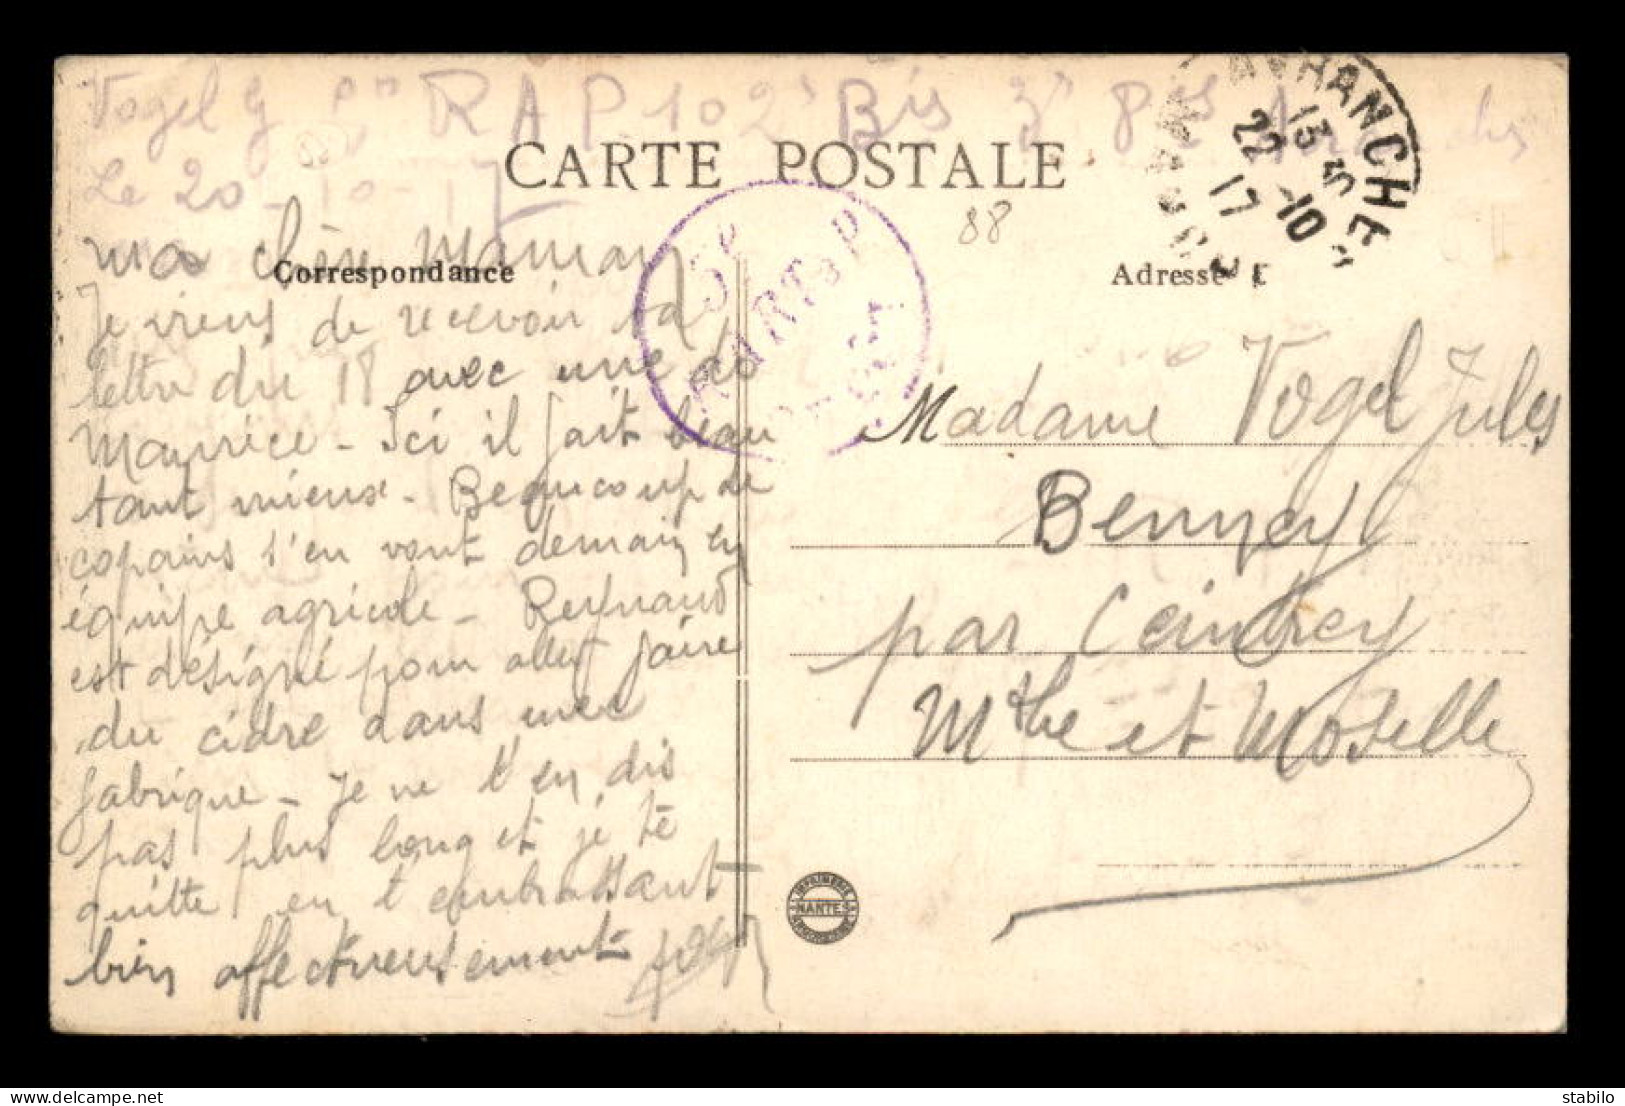 Vogel G RAP 102 Bis 3
Le 20-10-17
CARTE POSTALE
88
ma chère Maman
Correspondance
Adresse
Je viens de recevoir ta
lettre du 18 avec une de
Maurice - Ici il fait beau
tant mieux - Beaucoup de
copains s'en vont demain en
équipe agricole - Reynaud
est désigné pour aller faire
du cidre dans une
fabrique - Je ne t'en dis
pas plus long et je te
quitte en t'embrassant
bien affectueusement
AVRANCHES
13 45
22-10
17
MANCHE
Madame Vogel Jules
Benney
par Ceintrey
Mthe et Moselle
IMPRIMERIE
NANTES
delcampe.net
stabilo